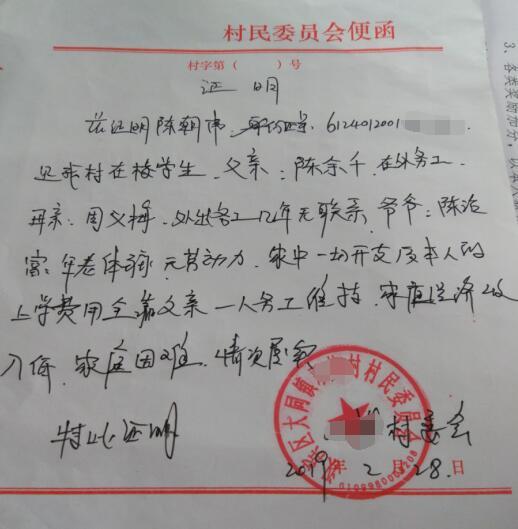 村民委员会便函
村字第( )号
证明
兹证明陈朝伟,身份证号:6124012001
是我村在校学生,父亲:陈余千,在外务工,
母亲:周义梅,外出务工几年无联系,爷爷:陈治
富:年老体弱,无劳动力,家中一切开支及本人的
上学费用全靠父亲一人务工维持,家庭经济收
入低,家庭困难,情况属实
特此证明
村委会
2019年2月28日
区大同镇 村村民委员会
3、各类奖励加分,以本人